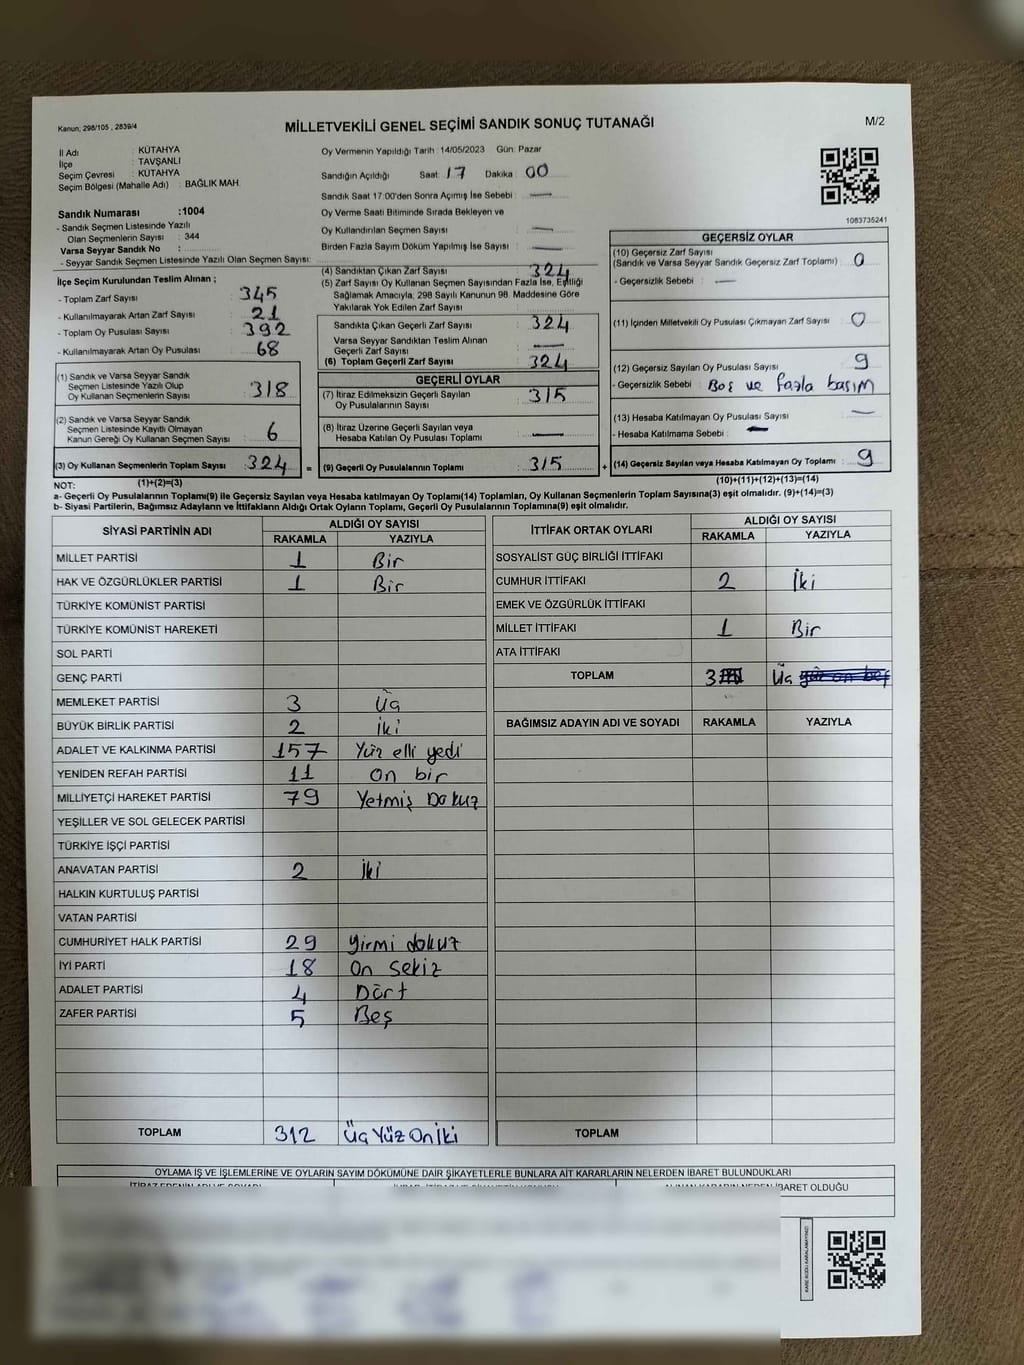 Kanun; 298/105 , 2839/4
MİLLETVEKİLİ GENEL SEÇİMİ SANDIK SONUÇ TUTANAĞI
M/2
İl Adı : KÜTAHYA
İlçe : TAVŞANLI
Seçim Çevresi : KÜTAHYA
Seçim Bölgesi (Mahalle Adı) : BAĞLIK MAH.
Sandık Numarası :1004
- Sandık Seçmen Listesinde Yazılı
Olan Seçmenlerin Sayısı : 344
Varsa Seyyar Sandık No :
- Seyyar Sandık Seçmen Listesinde Yazılı Olan Seçmen Sayısı:
Oy Vermenin Yapıldığı Tarih : 14/05/2023 Gün: Pazar
Sandığın Açıldığı Saat: 17 Dakika : 00
Sandık Saat 17:00'den Sonra Açımış İse Sebebi : —
Oy Verme Saati Bitiminde Sırada Bekleyen ve
Oy Kullandırılan Seçmen Sayısı : —
Birden Fazla Sayım Döküm Yapılmış İse Sayısı : —
1083735241
İlçe Seçim Kurulundan Teslim Alınan ;
- Toplam Zarf Sayısı : 345
- Kullanılmayarak Artan Zarf Sayısı : 21
- Toplam Oy Pusulası Sayısı : 392
- Kullanılmayarak Artan Oy Pusulası : 68
(1) Sandık ve Varsa Seyyar Sandık
Seçmen Listesinde Yazılı Olup
Oy Kullanan Seçmenlerin Sayısı : 318
(2) Sandık ve Varsa Seyyar Sandık
Seçmen Listesinde Kayıtlı Olmayan
Kanun Gereği Oy Kullanan Seçmen Sayısı : 6
(3) Oy Kullanan Seçmenlerin Toplam Sayısı : 324 =
(4) Sandıktan Çıkan Zarf Sayısı : 324
(5) Zarf Sayısı Oy Kullanan Seçmen Sayısından Fazla İse, Eşitliği
Sağlamak Amacıyla, 298 Sayılı Kanunun 98. Maddesine Göre
Yakılarak Yok Edilen Zarf Sayısı :
Sandıkta Çıkan Geçerli Zarf Sayısı : 324
Varsa Seyyar Sandıktan Teslim Alınan
Geçerli Zarf Sayısı : —
(6) Toplam Geçerli Zarf Sayısı : 324
GEÇERLİ OYLAR
(7) İtiraz Edilmeksizin Geçerli Sayılan
Oy Pusulalarının Sayısı : 315
(8) İtiraz Üzerine Geçerli Sayılan veya
Hesaba Katılan Oy Pusulası Toplamı : —
(9) Geçerli Oy Pusulalarının Toplamı : 315 +
GEÇERSİZ OYLAR
(10) Geçersiz Zarf Sayısı
(Sandık ve Varsa Seyyar Sandık Geçersiz Zarf Toplamı) : 0
- Geçersizlik Sebebi : —
(11) İçinden Milletvekili Oy Pusulası Çıkmayan Zarf Sayısı : 0
(12) Geçersiz Sayılan Oy Pusulası Sayısı : 9
- Geçersizlik Sebebi : Boş ve fazla basım
(13) Hesaba Katılmayan Oy Pusulası Sayısı : —
- Hesaba Katılmama Sebebi : —
(14) Geçersiz Sayılan veya Hesaba Katılmayan Oy Toplamı : 9
NOT: (1)+(2)=(3) (10)+(11)+(12)+(13)=(14)
a- Geçerli Oy Pusulalarının Toplamı(9) ile Geçersiz Sayılan veya Hesaba katılmayan Oy Toplamı(14) Toplamları, Oy Kullanan Seçmenlerin Toplam Sayısına(3) eşit olmalıdır. (9)+(14)=(3)
b- Siyasi Partilerin, Bağımsız Adayların ve İttifakların Aldığı Ortak Oyların Toplamı, Geçerli Oy Pusulalarının Toplamına(9) eşit olmalıdır.
SİYASİ PARTİNİN ADI ALDIĞI OY SAYISI
RAKAMLA YAZIYLA
MİLLET PARTİSİ 1 Bir
HAK VE ÖZGÜRLÜKLER PARTİSİ 1 Bir
TÜRKİYE KOMÜNİST PARTİSİ
TÜRKİYE KOMÜNİST HAREKETİ
SOL PARTİ
GENÇ PARTİ
MEMLEKET PARTİSİ 3 Üç
BÜYÜK BİRLİK PARTİSİ 2 İki
ADALET VE KALKINMA PARTİSİ 157 Yüz elli yedi
YENİDEN REFAH PARTİSİ 11 On bir
MİLLİYETÇİ HAREKET PARTİSİ 79 Yetmiş Dokuz
YEŞİLLER VE SOL GELECEK PARTİSİ
TÜRKİYE İŞÇİ PARTİSİ
ANAVATAN PARTİSİ 2 İki
HALKIN KURTULUŞ PARTİSİ
VATAN PARTİSİ
CUMHURİYET HALK PARTİSİ 29 Yirmi dokuz
İYİ PARTİ 18 On sekiz
ADALET PARTİSİ 4 Dört
ZAFER PARTİSİ 5 Beş
TOPLAM 312 Üç Yüz On İki
İTTİFAK ORTAK OYLARI ALDIĞI OY SAYISI
RAKAMLA YAZIYLA
SOSYALİST GÜÇ BİRLİĞİ İTTİFAKI
CUMHUR İTTİFAKI 2 İki
EMEK VE ÖZGÜRLÜK İTTİFAKI
MİLLET İTTİFAKI 1 Bir
ATA İTTİFAKI
TOPLAM 3 Üç
BAĞIMSIZ ADAYIN ADI VE SOYADI RAKAMLA YAZIYLA
TOPLAM
OYLAMA İŞ VE İŞLEMLERİNE VE OYLARIN SAYIM DÖKÜMÜNE DAİR ŞİKAYETLERLE BUNLARA AİT KARARLARIN NELERDEN İBARET BULUNDUKLARI
İTİRAZ EDENİN ADI VE SOYADI ALINAN KARARIN NEDEN İBARET OLDUĞU